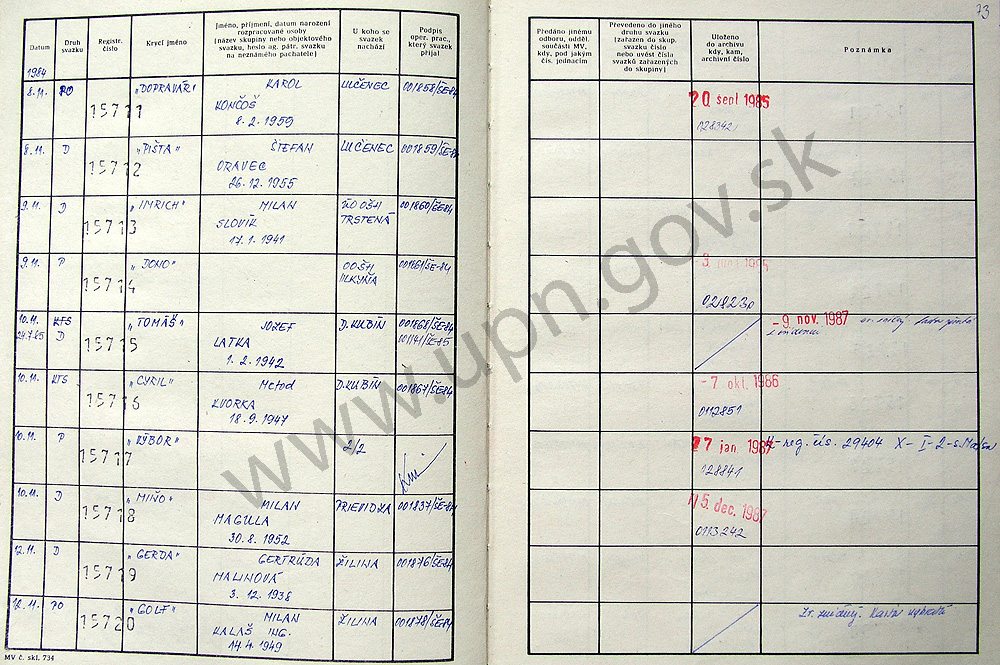 73
Datum
Druh svazku
Registr. číslo
Krycí jméno
Jméno, příjmení, datum narození rozpracované osoby (název skupiny nebo objektového svazku, heslo ag. pátr. svazku na neznámého pachatele)
U koho se svazek nachází
Podpis oper. prac., který svazek přijal
Předáno jinému odboru, odděl. součásti MV, kdy, pod jakým čís. jednacím
Převedeno do jiného druhu svazku (zařazen do skup. svazku číslo nebo uvést čísla svazků zařazených do skupiny)
Uloženo do archivu kdy, kam, archivní číslo
Poznámka
1984
8.11. PO 15711 "DOPRAVÁR" KAROL LUČENEC 001858/ŠE-84 20. sept 1985
KONČOŠ
8.2.1959 028342
8.11. D 15712 "PIŠTA" ŠTEFAN LUČENEC 001859/ŠE-84
ORAVEC
26.12.1955
9.11. D 15713 "IMRICH" MILAN OOŠH 001860/ŠE-84
SLOVÍK TRSTENÁ
17.1.1941
9.11. P 15714 "DONO" OOŠH 001861/ŠE-84
021823
10.11. KTS 15715 "TOMÁŠ" JOZEF D.KUBÍN 001868/ŠE-84 - 9. nov. 1987
24.7.85 D LATKA 001141/ŠE-85
1.2.1942
10.11. KTS 15716 "CYRIL" Metod D.KUBÍN 001867/ŠE-84 - 7. okt. 1986
KVORKA 0112851
18.9.1947
10.11. P 15717 "VÝBOR" 2/2 27. jan. 1987 reg. čís. 29404 X-I-2-
028841
10.11. D 15718 "MIŇO" MILAN PRIEVIDZA 001837/ŠE-84 15. dec. 1987
MAGULA 0113242
30.8.1952
12.11. D 15719 "GERDA" GERTRÚDA ŽILINA 001876/ŠE-84
MALINOVÁ
3.12.1938
12.11. PO 15720 "GOLF" MILAN ŽILINA 001878/ŠE-84 Zv. zničený. Karta vybratá
KALAŠ ING.
14.4.1949
MV č. skl. 734
www.upn.gov.sk